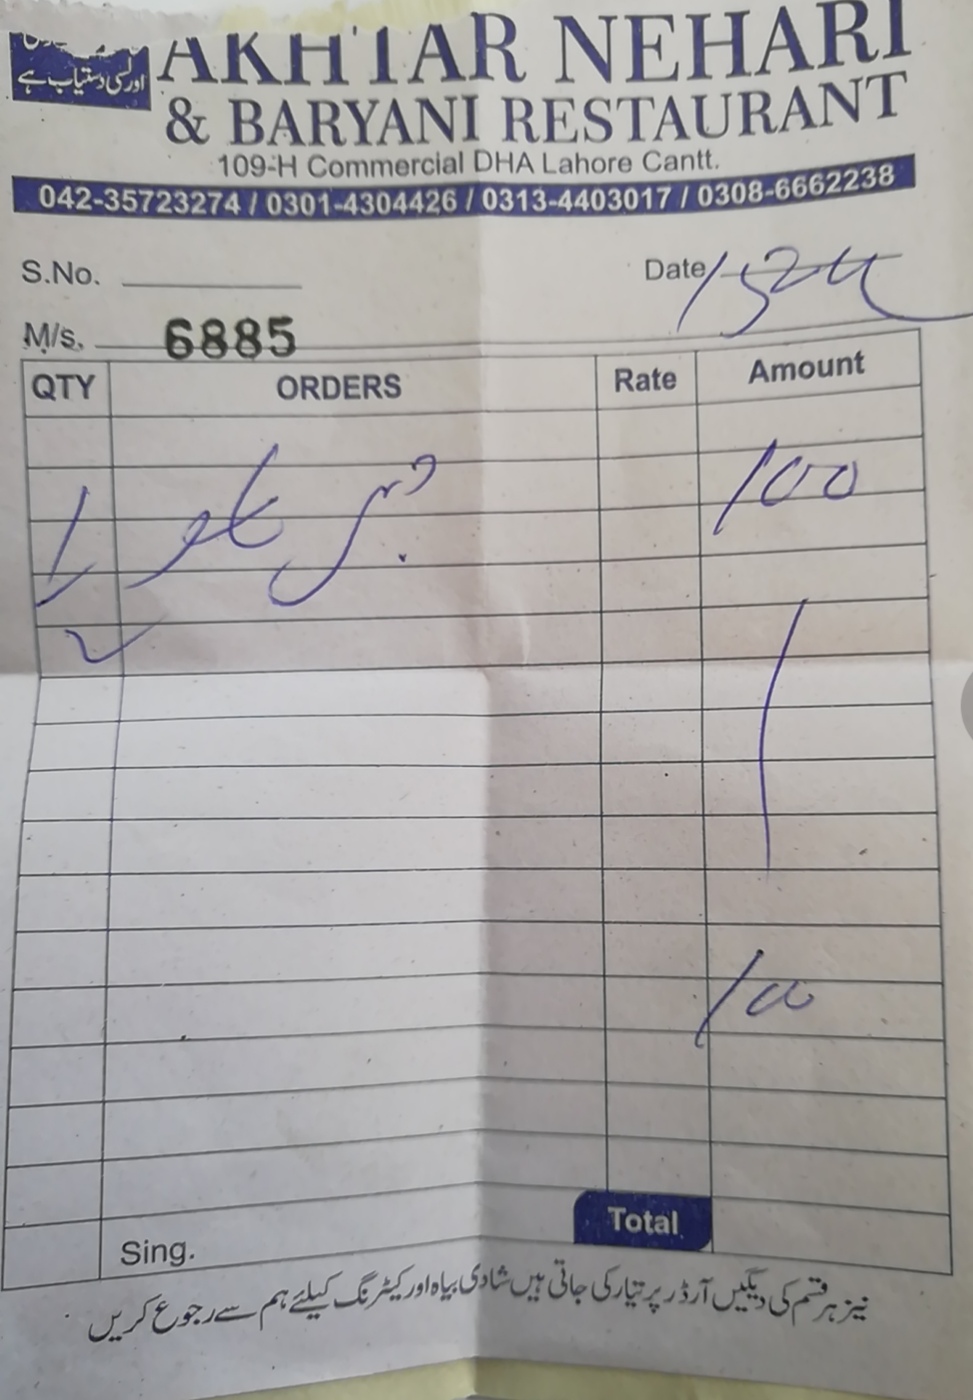 اور لسی دستیاب ہے
AKHTAR NEHARI
& BARYANI RESTAURANT
109-H Commercial DHA Lahore Cantt.
042-35723274 / 0301-4304426 / 0313-4403017 / 0308-6662238
S.No.
Date
M/s. 6885
QTY ORDERS Rate Amount
1 100
100
Total
Sing.
نیز ہر قسم کی دیگیں آرڈر پر تیار کی جاتی ہیں شادی بیاہ اور کیٹرنگ کیلئے ہم سے رجوع کریں